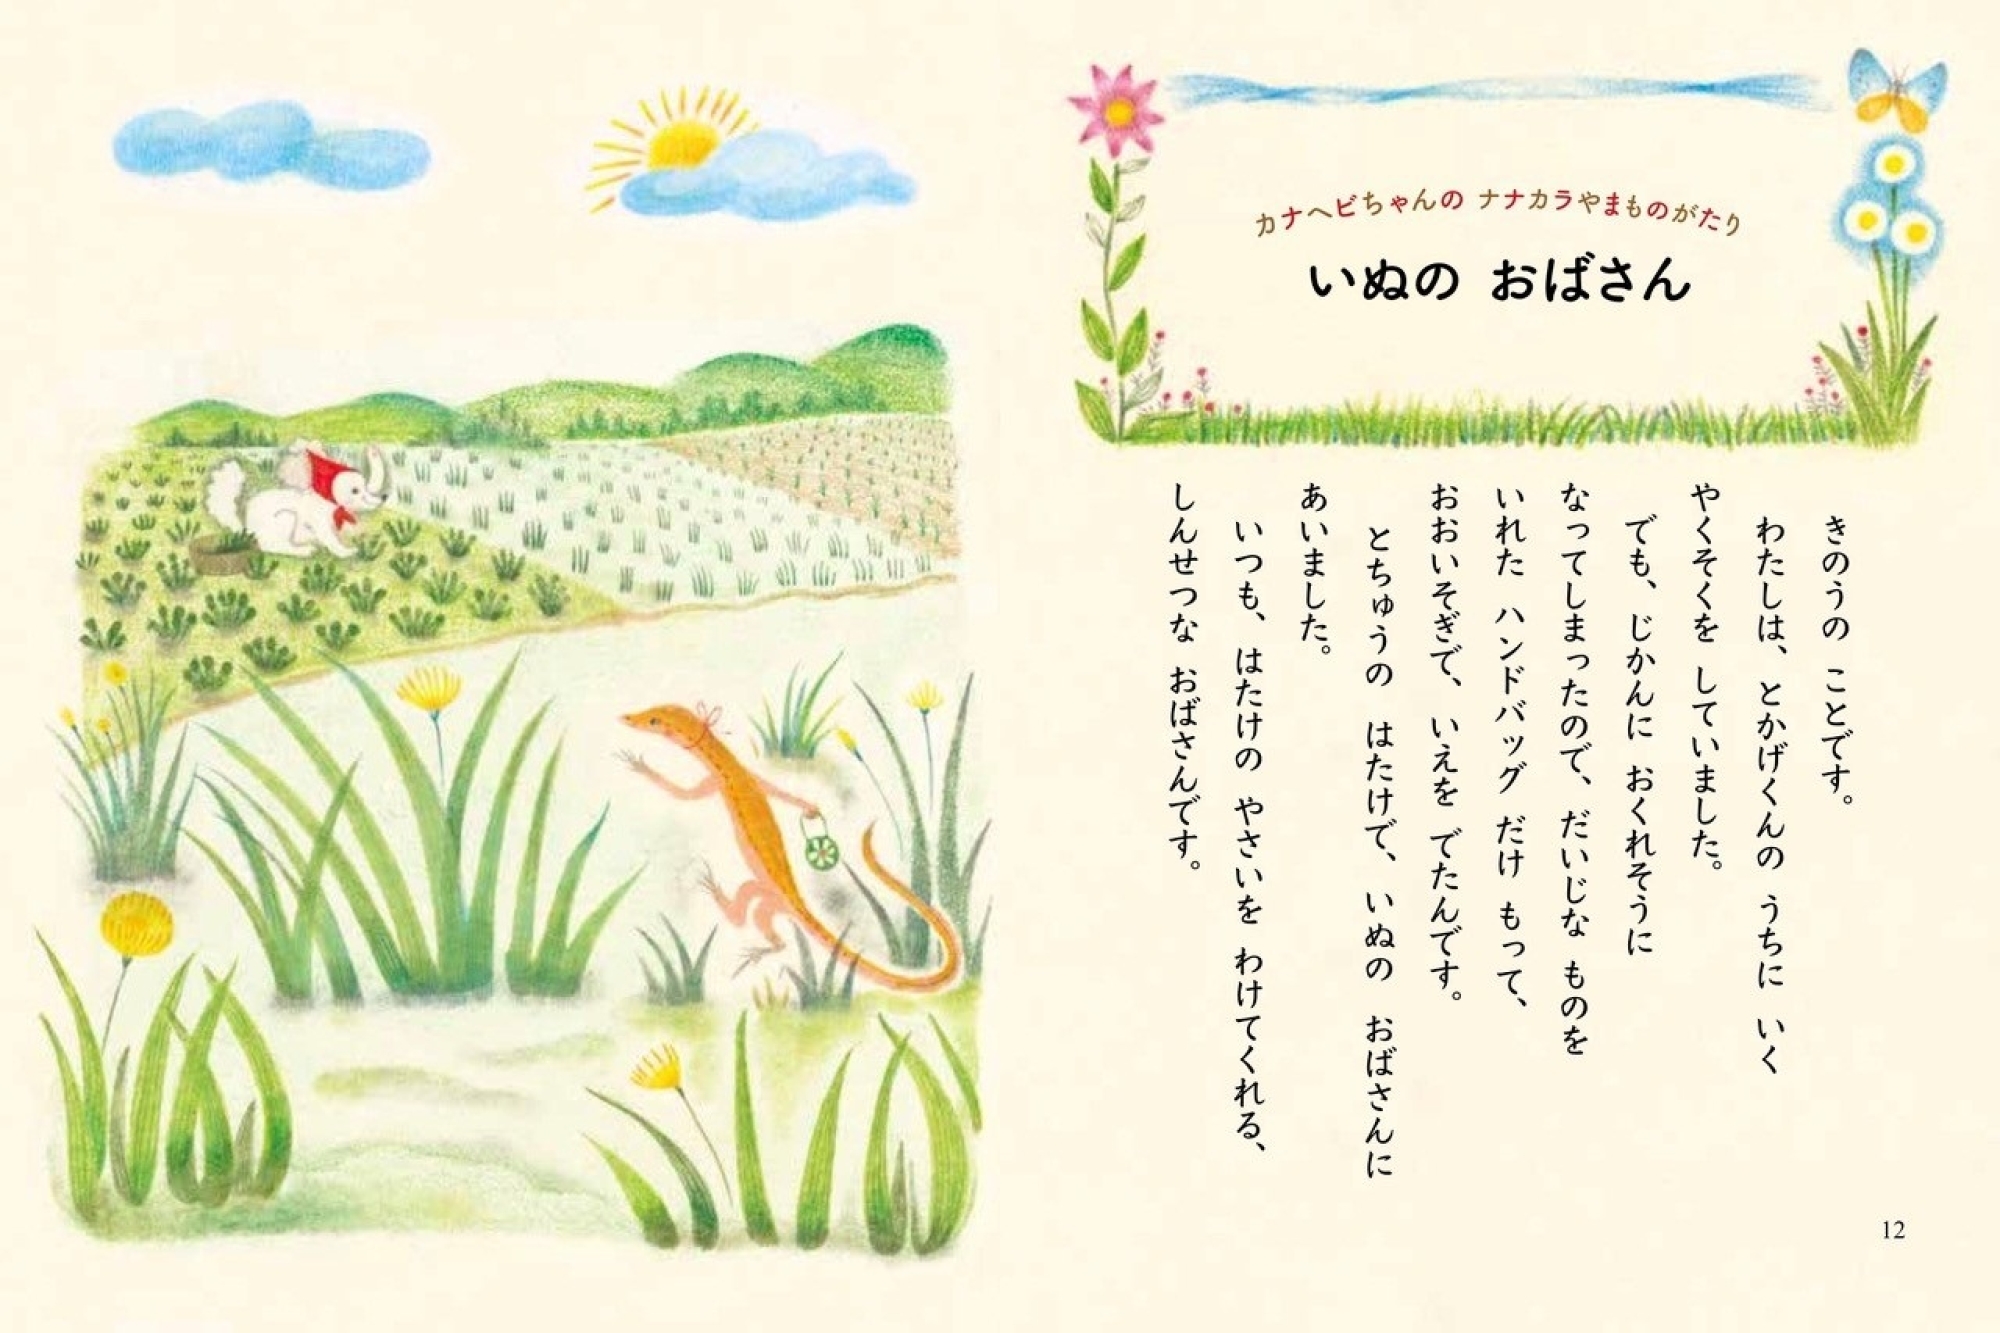 カナヘビちゃんの ナナカラやまものがたり
いぬの おばさん
きのうの ことです。
わたしは、とかげくんの うちに いく
やくそくを していました。
でも、じかんに おくれそうに
なってしまったので、だいじな ものを
いれた ハンドバッグ だけ もって、
おおいそぎで、いえを でたんです。
とちゅうの はたけで、いぬの おばさんに
あいました。
いつも、はたけの やさいを わけてくれる、
しんせつな おばさんです。
12